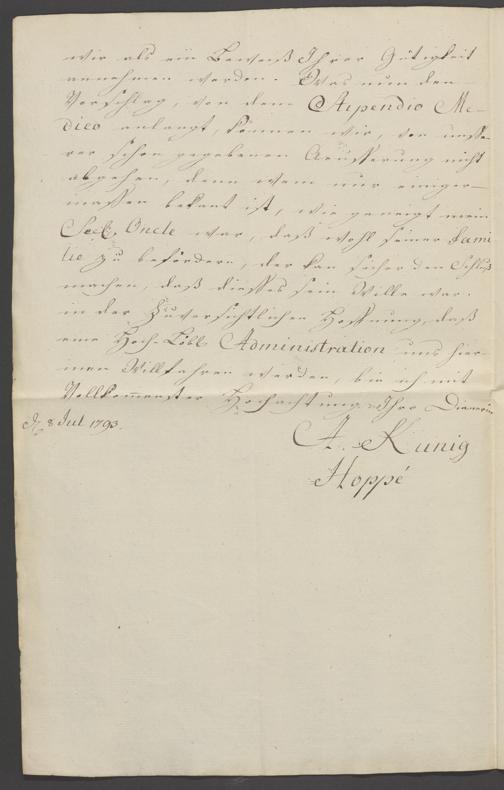 wir als ein Beweiß Ihrer Gütigkeit
annehmen werden. Was nun den
Vorschlag, von dem Stipendio Me-
dico anlangt, können wir, von unse-
rer schon gegebenen Aeusserung nicht
abgehen, denn wem nur einiger-
massen bekant ist, wie geneigt mein
Seel. Oncle war, das wohl seiner Fami
lie zu befördern, der kan sicher den Schluß
machen, daß dieses sein Wille war.
in der Zuversichtlichen Hoffnung, daß
eine Hoch-Löbl. Administration uns hier-
inen Willfahren werden, bin ich mit
Vollkommenster Hochachtung Ihre Dienerin
8 Jul 1793.
A. Kunig
Hoppé